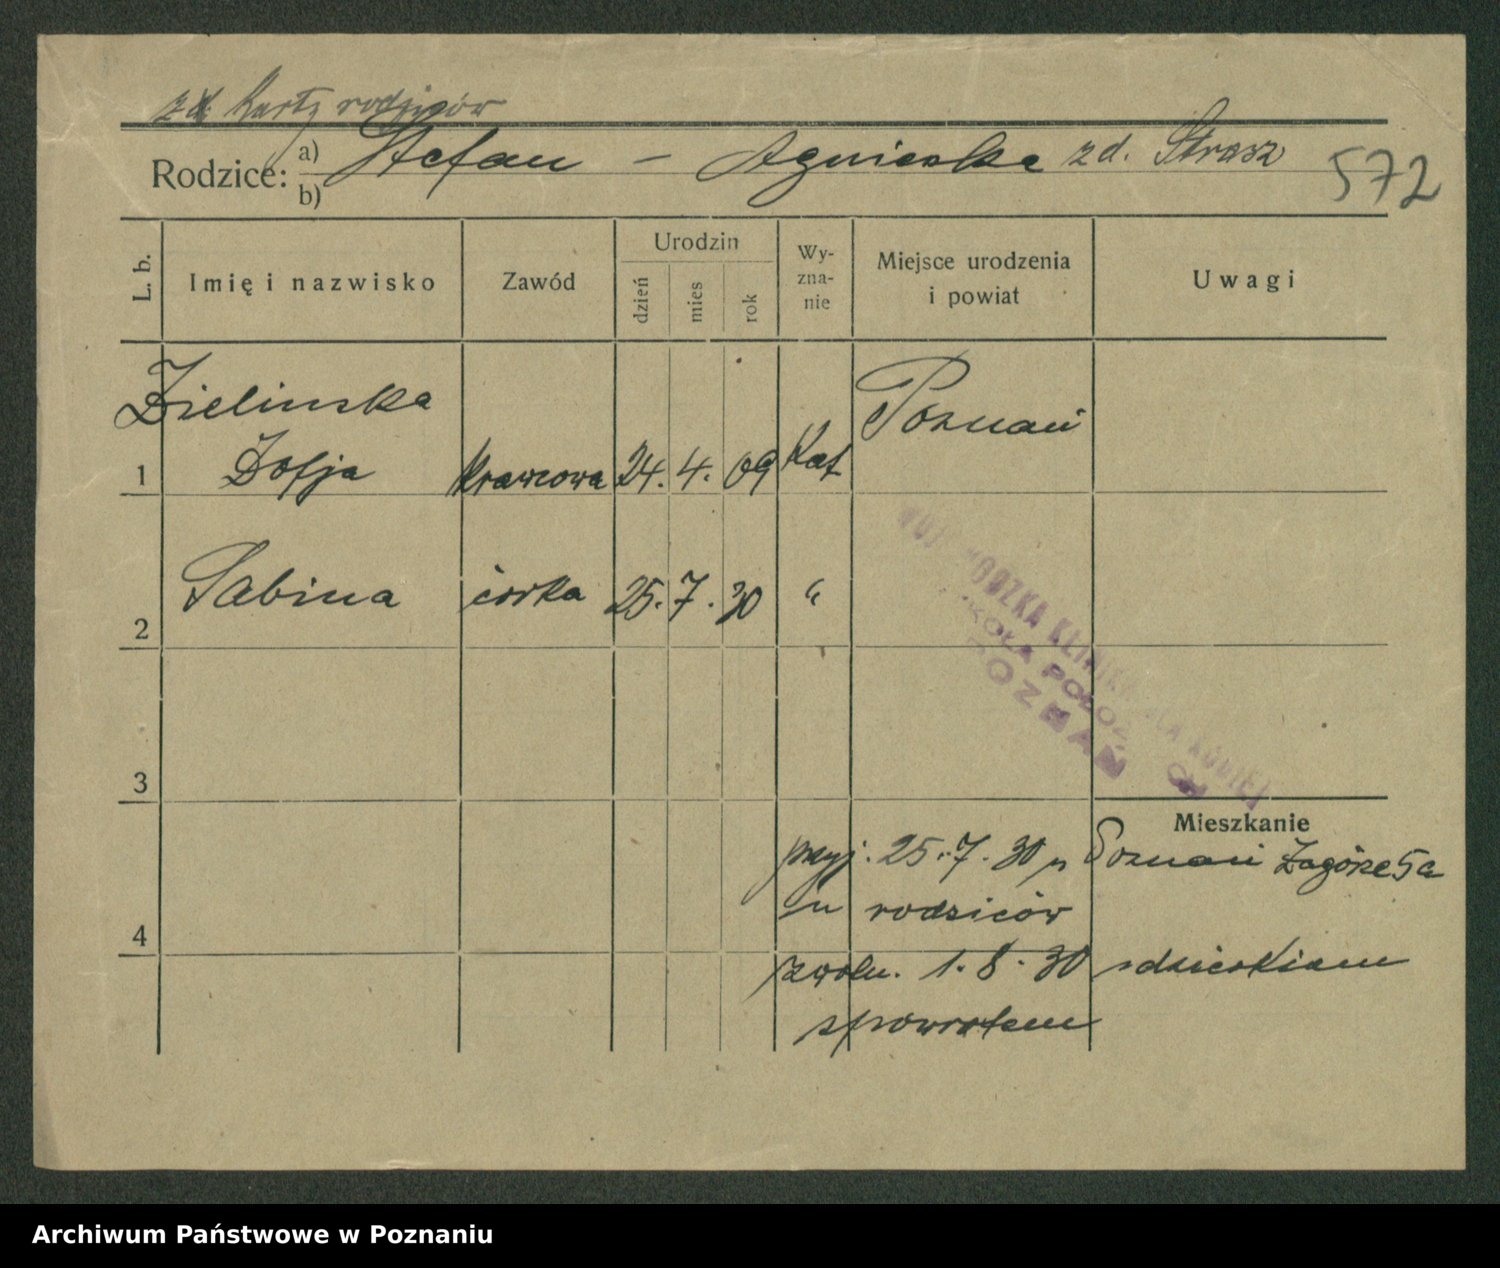 z Karty rodziców
Rodzice: a) Stefan – Agnieszka zd. Strasz
b)
572
L. b. Imię i nazwisko Zawód Urodzin dzień mies rok Wyznanie Miejsce urodzenia i powiat Uwagi
Zielinska Poznań
1 Zofja krawcowa 24. 4. 09 Kat
2 Sabina córka 25. 7. 30 "
KLINIKA DLA KOBIET
POZNAŃ
3
Mieszkanie
przyj. 25.7.30 Poznań Zagórze 5a
4 u rodziców
zwoln. 1.8.30 z dzieckiem
spowrotem
Archiwum Państwowe w Poznaniu